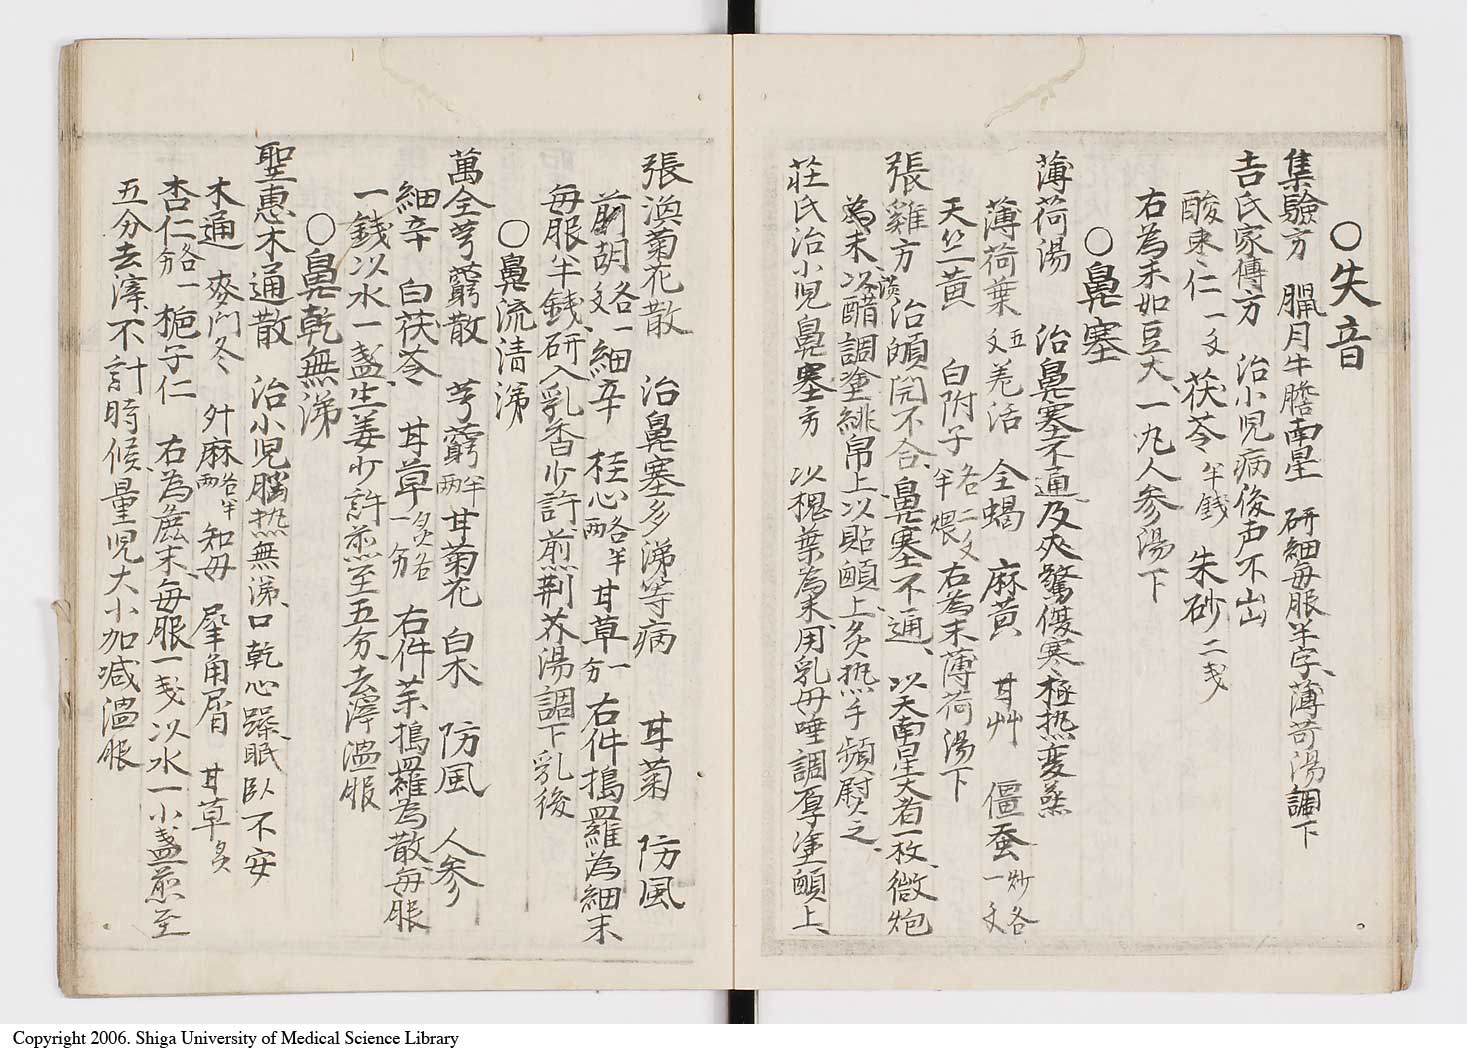 ○失音
集驗方　臘月牛膽南星　研細毎服半字、薄荷湯調下
吉氏家傳方　治小児病後声不出
酸枣仁一文　茯苓半銭　朱砂二戔
右為末如豆大、一丸人参湯下
○鼻塞
薄荷湯　治鼻塞不通及夾驚傷寒極热変蒸
薄荷葉五文　羌活　全蝎　麻黄　甘艸　僵蚕炒各一文
天竺黄　白附子各二文半煨　右為末薄荷湯下
張雞方　治顖開不合、鼻塞不通、以天南星大者一枚、微炮
為末、以醋調塗緋帛上以貼顖上炙热手頻熨之、
莊氏治小児鼻塞方　以槐葉為末用乳母唾調厚塗顖上、
張渙菊花散　治鼻塞多涕等病　甘菊　防風
前胡各一文、細辛　桂心各半两　甘草一分　右件搗羅為細末
毎服半銭、研入乳香少許煎荆芥湯調下乳後
○鼻流清涕
萬全芎藭散　芎藭半两　甘菊花　白朮　防風　人参
細辛　白茯苓、甘草炙各一分　右件等搗羅為散、毎服
一錢以水一盞生姜少許煎至五分、去滓温服
○鼻乾無涕
聖惠木通散　治小児脳热無涕、口乾心躁、眠臥不安
木通　麥門冬　升麻各半两　知母　犀角屑　甘草炙
杏仁各一分　栀子仁　右為麁末、毎服一戔以水一小盞煎至
五分去滓、不計時候、量児大小加减温服
Copyright 2006. Shiga University of Medical Science Library